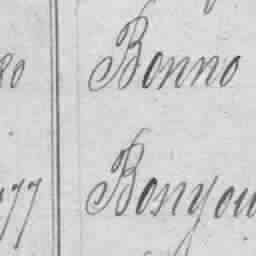 Bonno
77 Bonyou